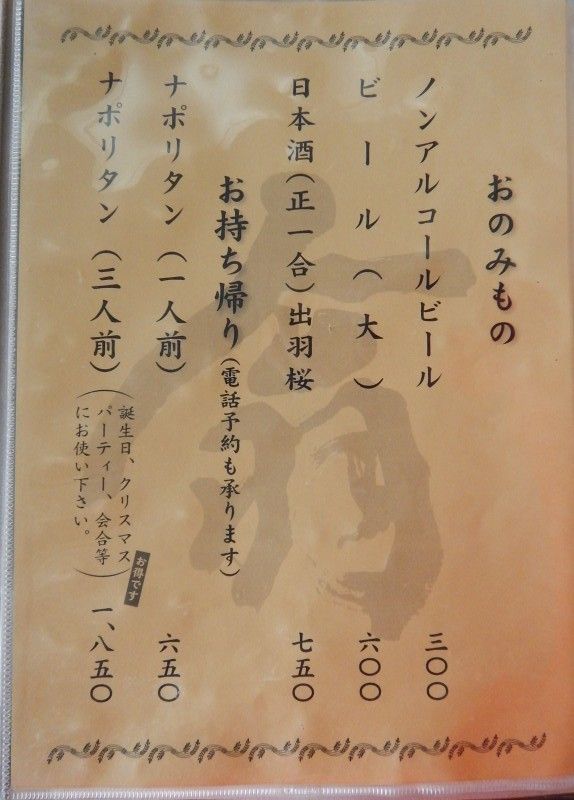 おのみもの
ノンアルコールビール 三〇〇
ビール(大) 六〇〇
日本酒(正一合)出羽桜 七五〇
お持ち帰り(電話予約も承ります)
ナポリタン(一人前) 六五〇
ナポリタン(三人前)(誕生日、クリスマス
パーティー、会合等
にお使い下さい。)
お得です
一、八五〇